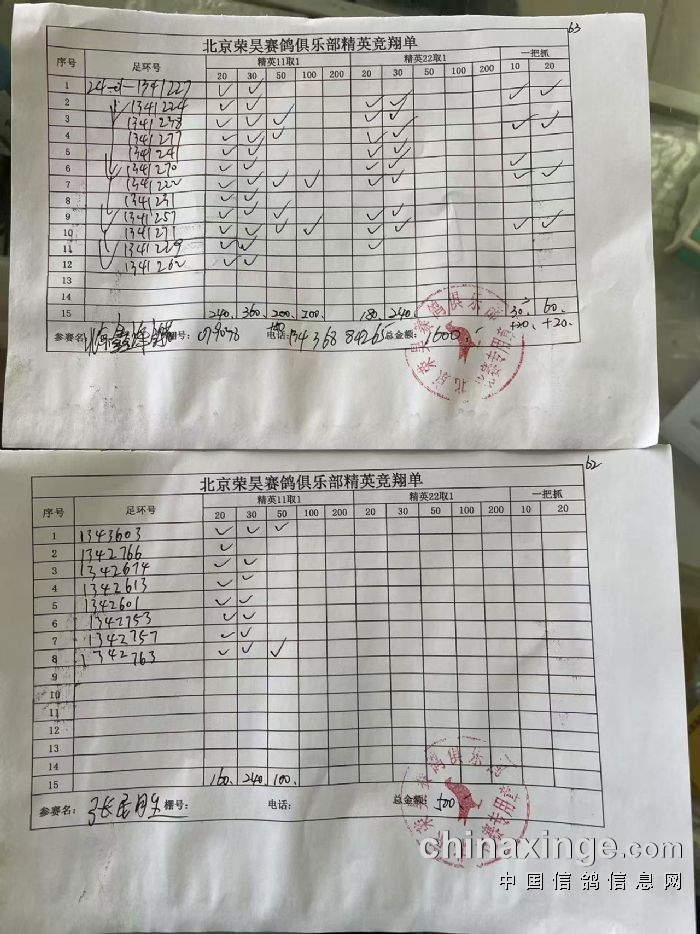 63
北京荣昊赛鸽俱乐部精英竞翔单
序号 足环号 精英11取1 精英22取1 一把抓
20 30 50 100 200 20 30 50 100 200 10 20
1 24-01-1341227 ✓ ✓ ✓ ✓
2 1341224 ✓ ✓ ✓ ✓
3 1341238 ✓ ✓ ✓ ✓ ✓ ✓ ✓
4 1341277 ✓ ✓ ✓ ✓ ✓
5 ✓ ✓ ✓ ✓
6 1341270 ✓ ✓ ✓ ✓ ✓
7 1341222 ✓ ✓ ✓ ✓ ✓ ✓ ✓ ✓
8 1341231 ✓ ✓
9 1341257 ✓ ✓ ✓ ✓ ✓
10 1341271 ✓ ✓ ✓ ✓ ✓ ✓ ✓ ✓
11 1341229 ✓ ✓ ✓
12 1341262 ✓ ✓
13
14
15 240. 360. 200. 200. 180. 240. 30. 60.
+20. +20.
参赛名: 棚号: 电话: 总金额: 1600.
北京荣昊赛鸽俱乐部
竞赛专用章
62
北京荣昊赛鸽俱乐部精英竞翔单
序号 足环号 精英11取1 精英22取1 一把抓
20 30 50 100 200 20 30 50 100 200 10 20
1 1343603 ✓ ✓ ✓
2 1342766 ✓
3 1342674 ✓ ✓
4 1342613 ✓ ✓
5 1342601 ✓ ✓
6 1342753 ✓ ✓
7 1342757 ✓ ✓
8 1342763 ✓ ✓ ✓
9
10
11
12
13
14
15 160. 240. 100.
参赛名: 棚号: 电话: 总金额: 500
chinaxinge.com
中国信鸽信息网